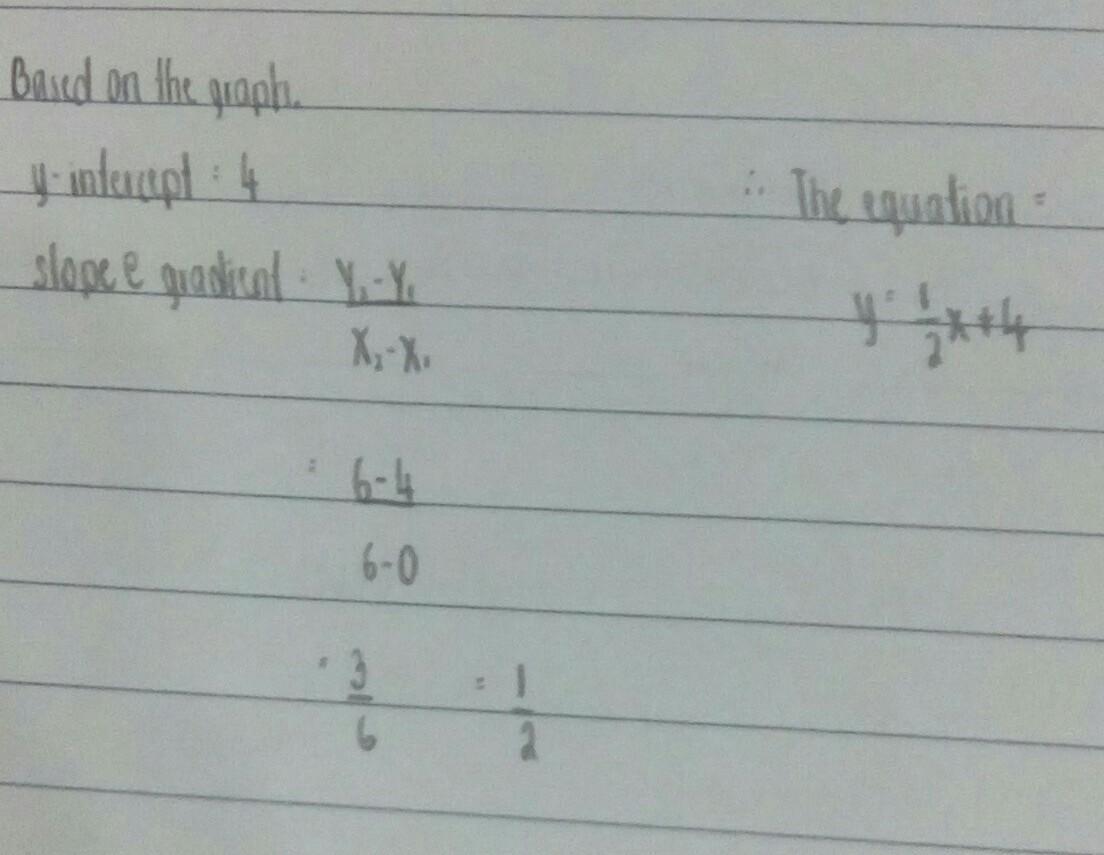 Based on the graph.
y-intercept : 4
slope e gradient : Y₂-Y₁
X₂-X₁
= 6-4
6-0
= 3 = 1
6 2
∴ The equation =
y = 1/2 x + 4